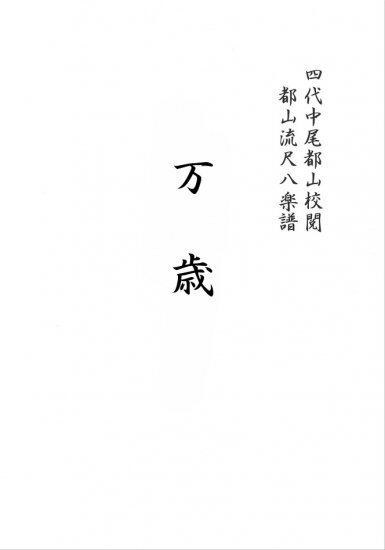 四代中尾都山校閲
都山流尺八楽譜
万歳